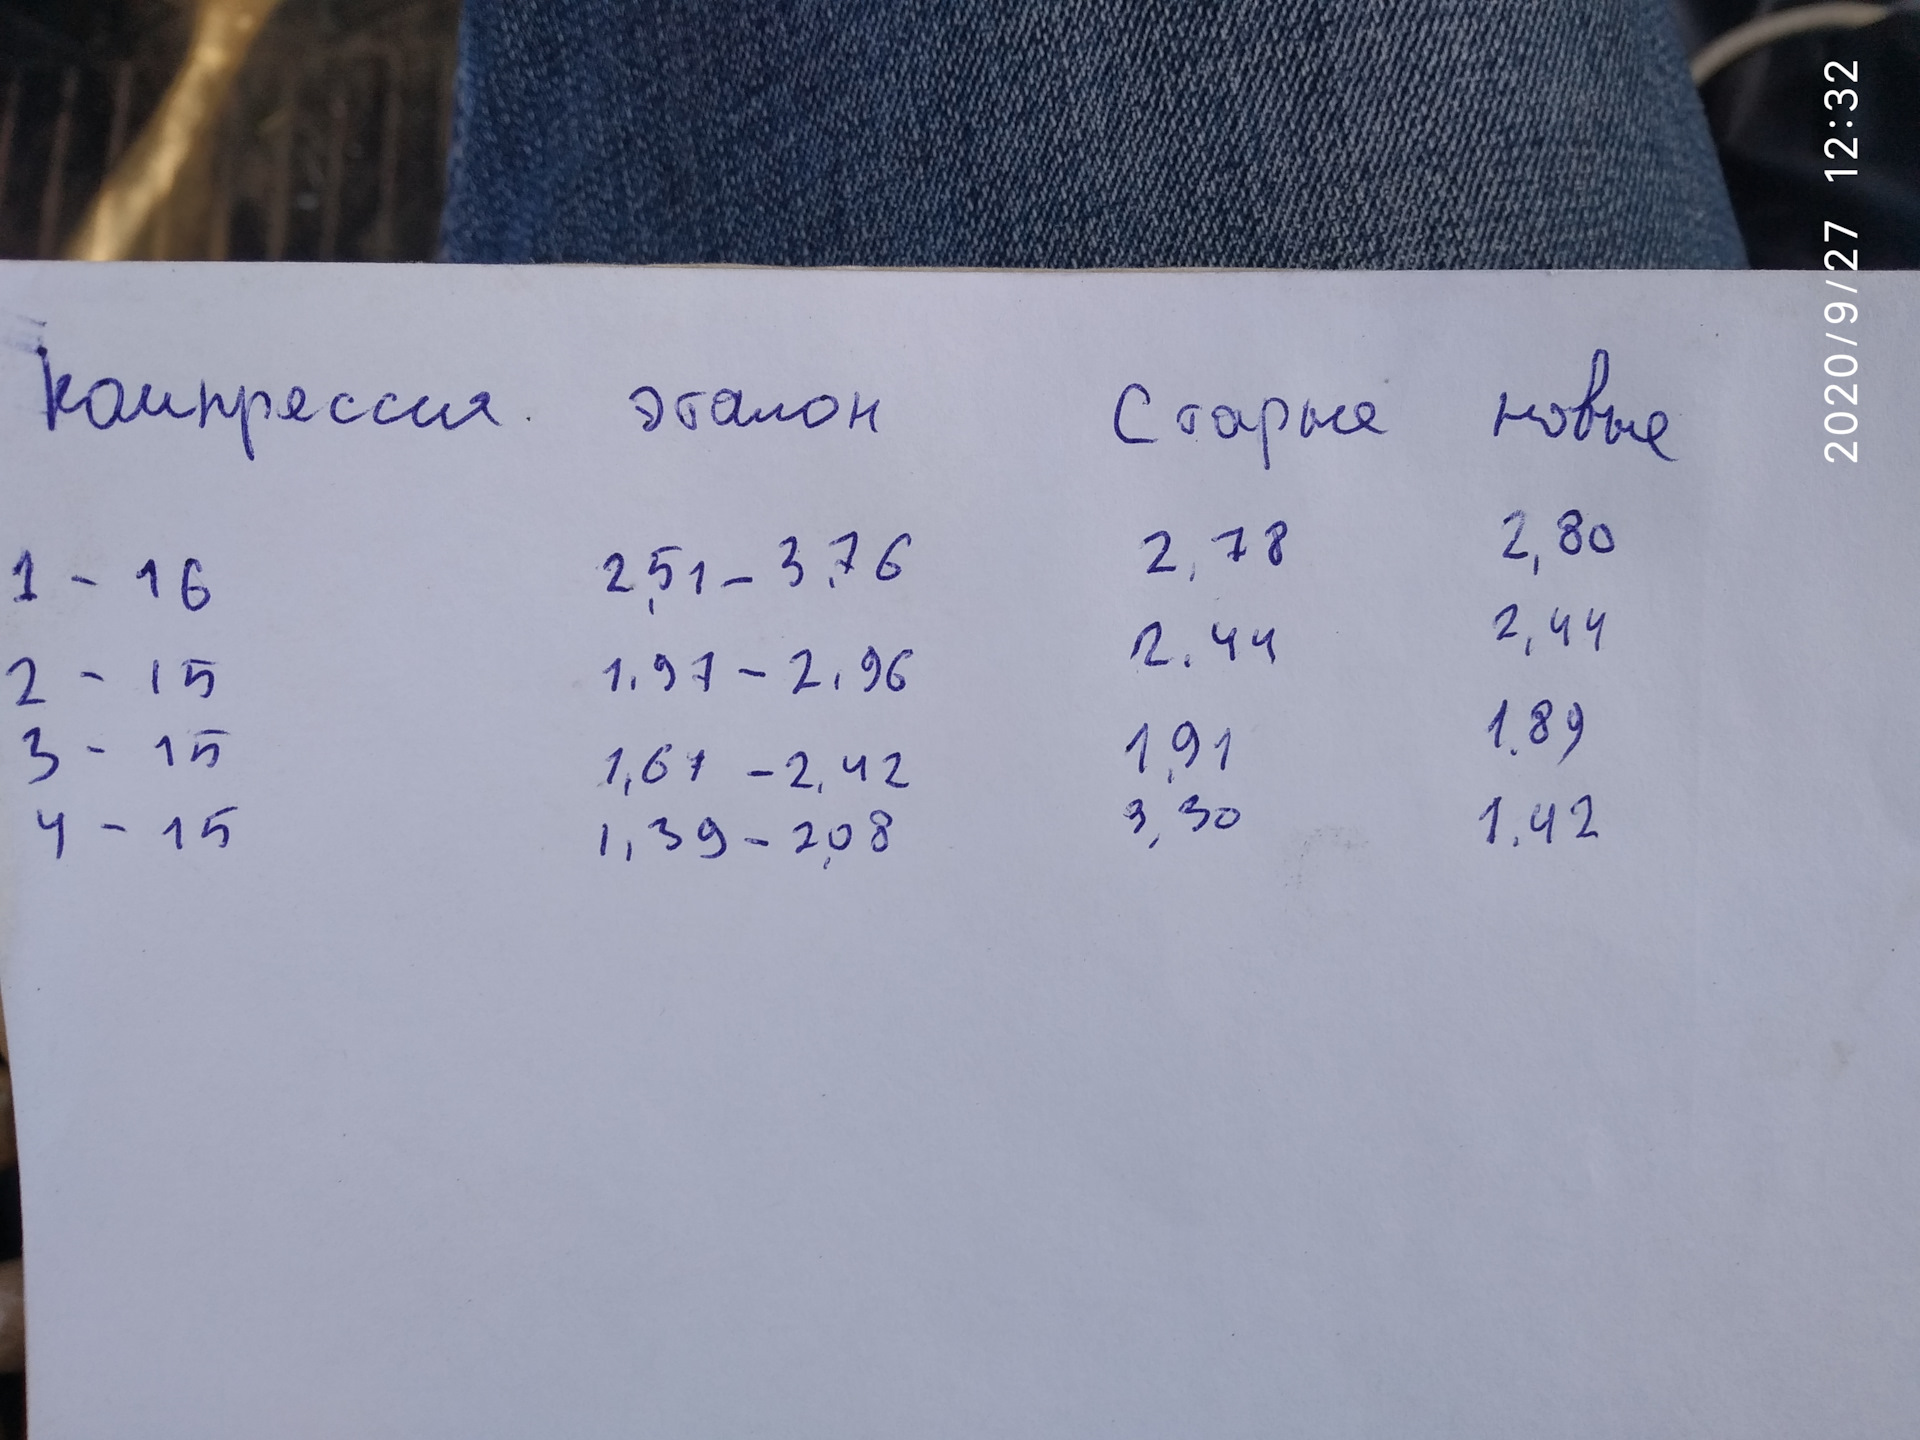 Компрессия. эталон Старые новые
1 - 16 2,51 - 3,76 2,78 2,80
2 - 15 1.97 - 2.96 2.44 2,44
3 - 15 1,61 - 2,42 1,91 1.89
4 - 15 1,39 - 2,08 3,30 1.42
2020/9/27 12:32